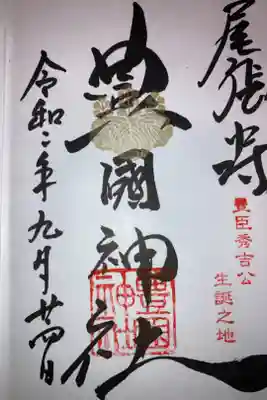 尾張中村
豊臣秀吉公
生誕之地
豊國神社
令和二年九月廿四日